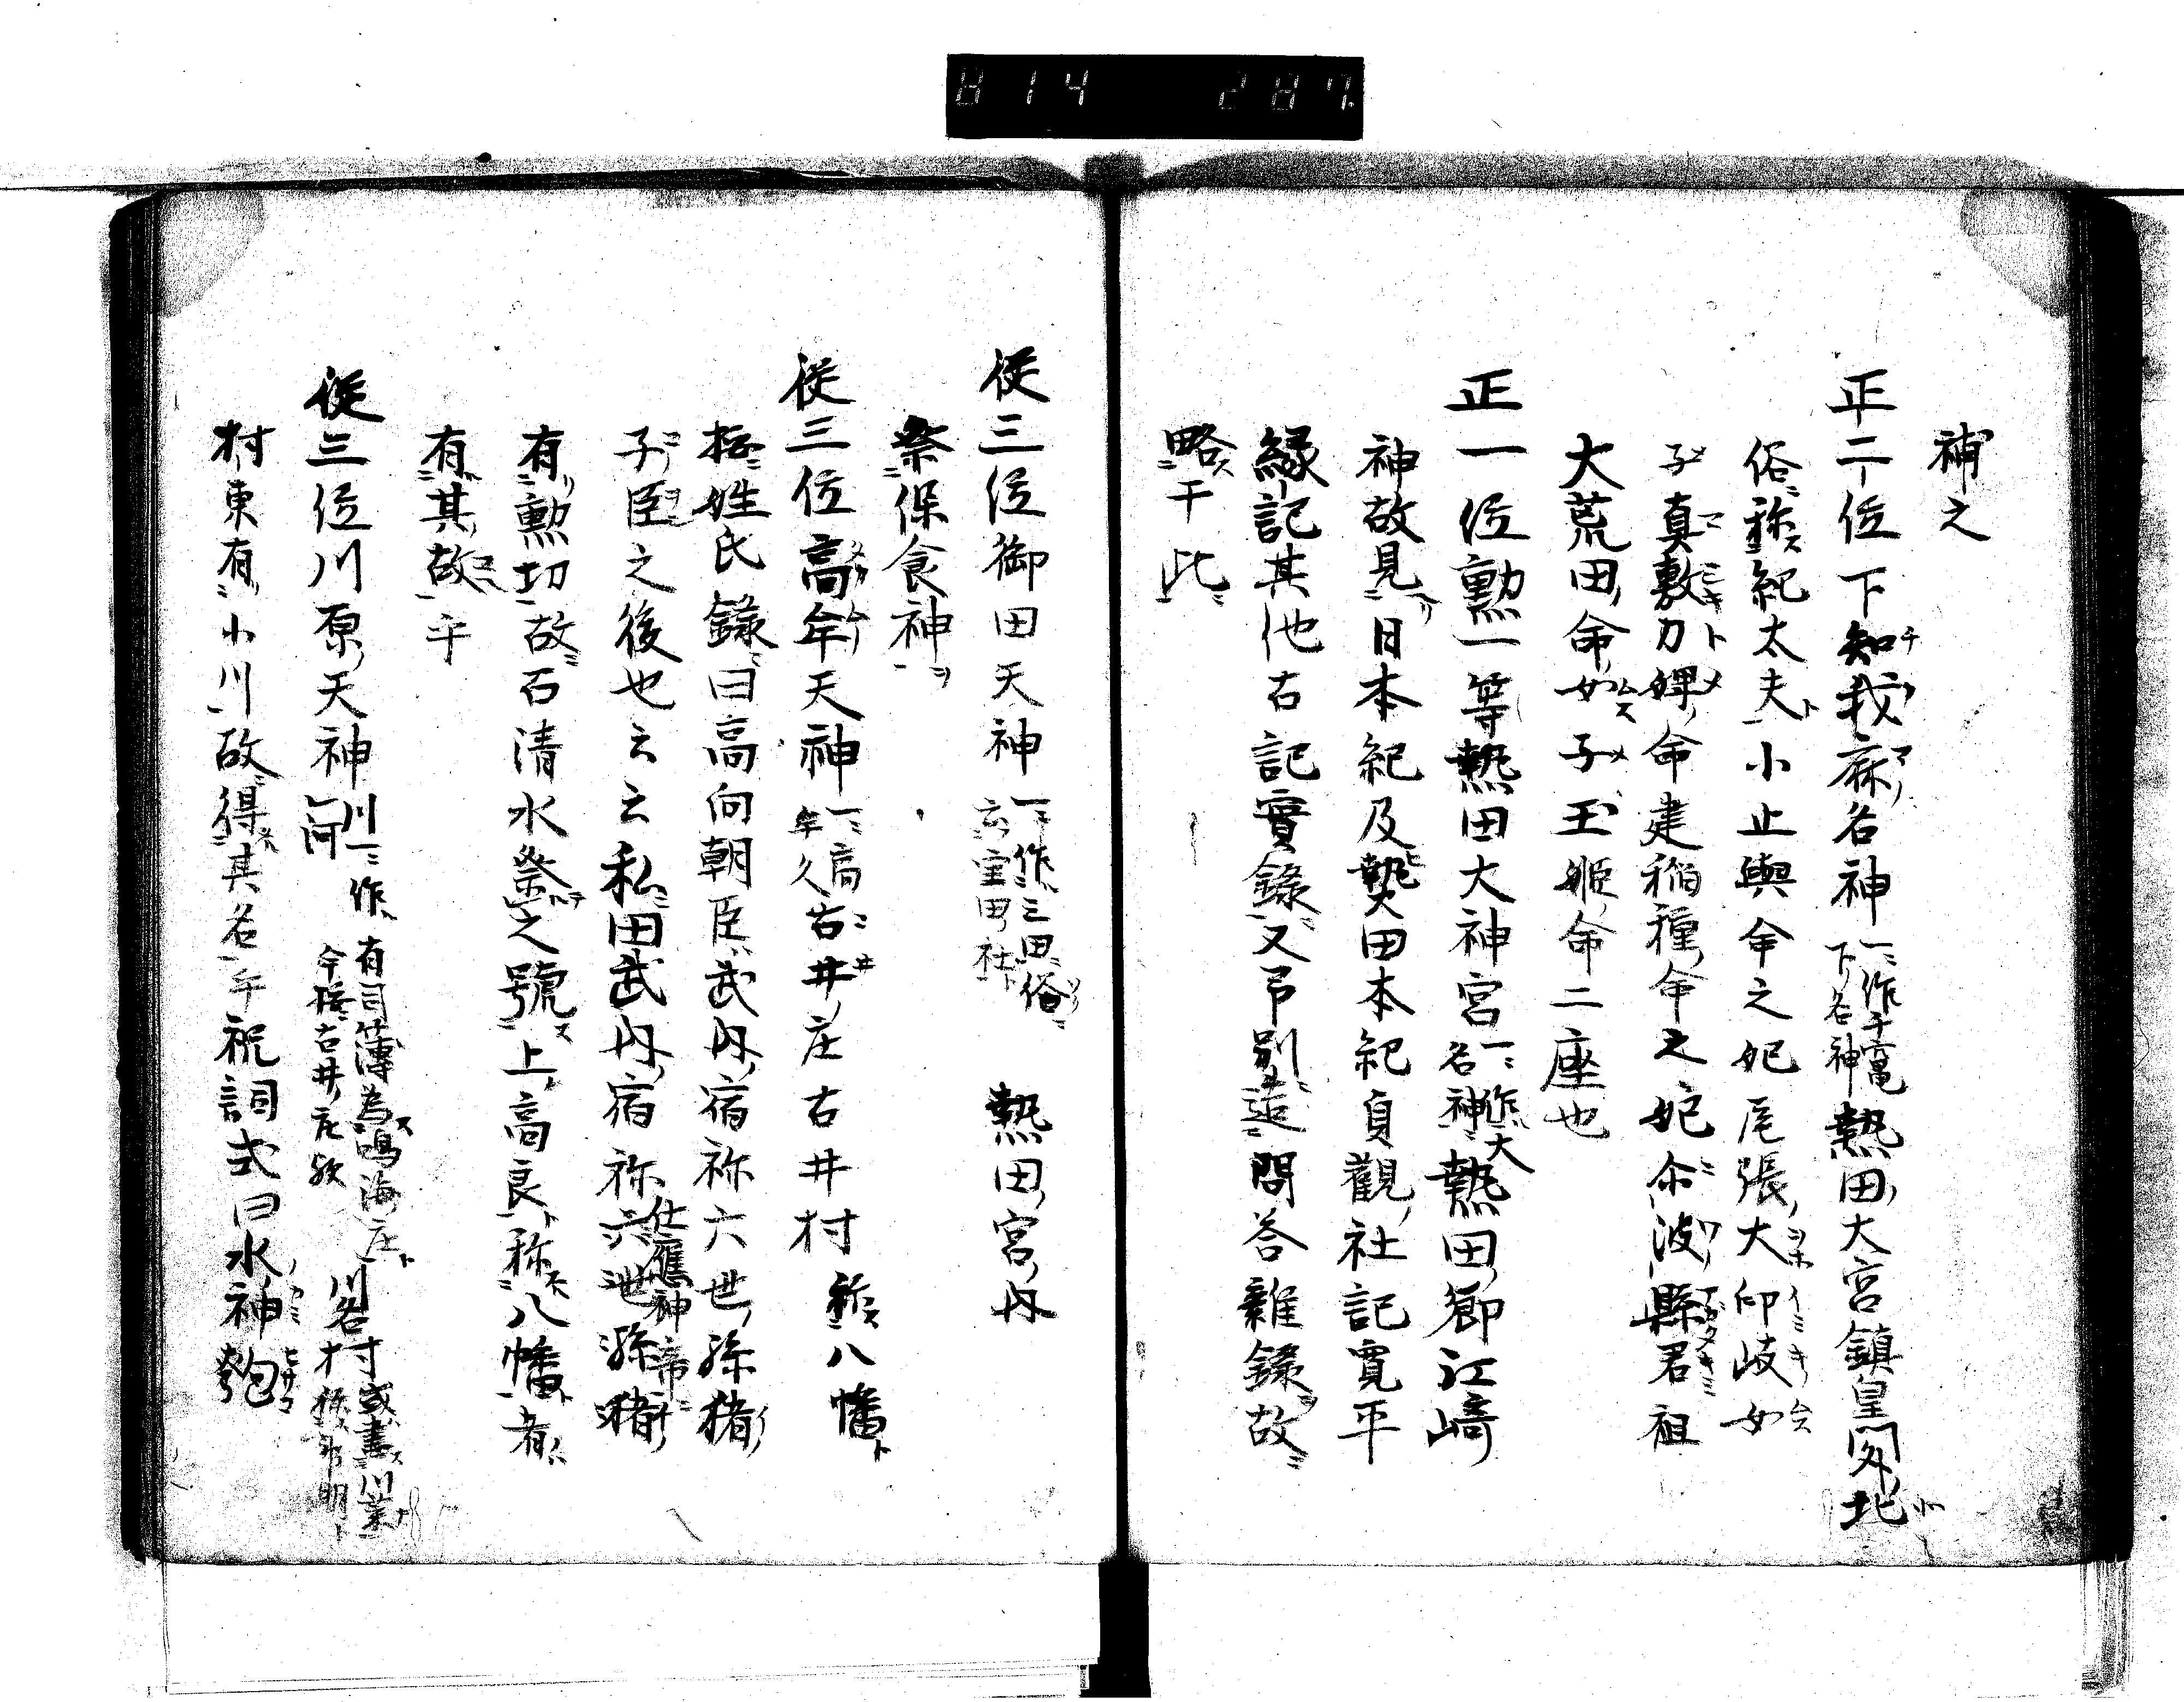 814 287
補之
正二位下知我麻名神 一作千竃下名神 熱田大宮鎮皇門外北
俗称紀太夫小止與命之妃尾張大印岐女
子真敷刀婢命建稲種命之妃尒波縣君祖
大荒田命女子玉姫命二座也
正一位勲一等熱田大神宮 一作大名神 熱田郷江﨑
神故見日本紀及熱田本紀貞觀社記寛平
縁記其他古記實録又予別造問荅雜録故
略于此
従三位御田天神 一作三田俗云室田社 熱田宮内
祭保食神
従三位高牟天神 一高牟久 古井庄古井村 称八幡
按姓氏録曰高向朝臣武内宿祢六世孫猪
子臣之後也云云私田武内宿祢 仕應神帝 六世孫猪
有勲切故石清水祭之號上高良称八幡者
有其故乎
従三位川原天神 川一作河 有司簿為鳴海庄今按古井庄歟 川名村 村或書川業
村東有小川故得其名乎祝詞式曰水神匏